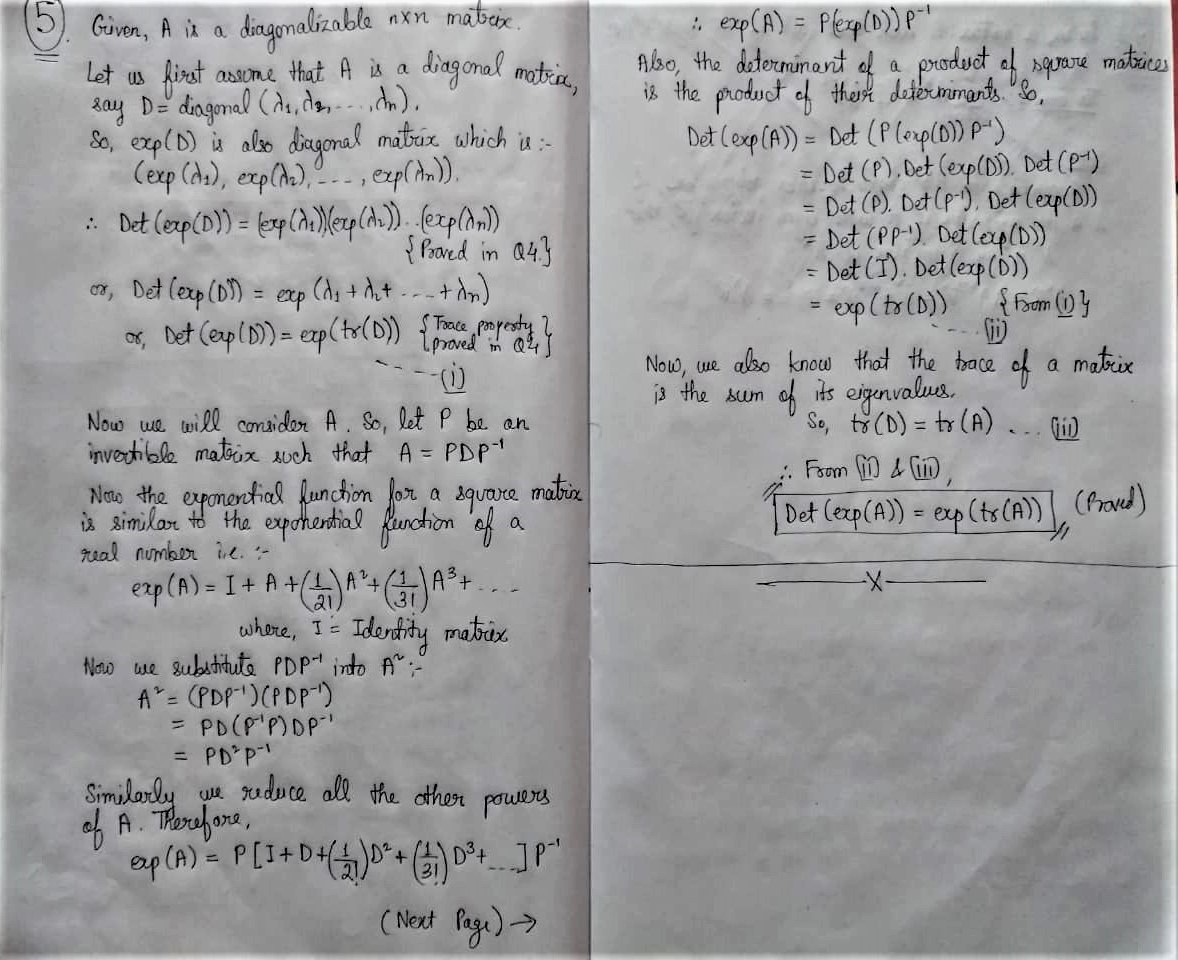 5. Given, A is a diagonalizable n×n matrix.
Let us first assume that A is a diagonal matrix,
say D = diagonal (λ₁, λ₂, ---, λₙ).
So, exp(D) is also diagonal matrix which is :-
(exp(λ₁), exp(λ₂), ---, exp(λₙ)).
∴ Det(exp(D)) = (exp(λ₁))(exp(λ₂))...(exp(λₙ))
{Proved in Q4.}
or, Det(exp(D)) = exp(λ₁+λ₂+ ---+λₙ)
or, Det(exp(D)) = exp(tr(D)) {Trace property proved in Q4}
-----(i)
Now we will consider A. So, let P be an
invertible matrix such that A = PDP⁻¹
Now the exponential function for a square matrix
is similar to the exponential function of a
real number i.e. :-
exp(A) = I + A + (1/2!)A² + (1/3!)A³ + ....
where, I = Identity matrix
Now we substitute PDP⁻¹ into A² :-
A² = (PDP⁻¹)(PDP⁻¹)
= PD(P⁻¹P)DP⁻¹
= PD²P⁻¹
Similarly we reduce all the other powers
of A. Therefore,
exp(A) = P[I + D + (1/2!)D² + (1/3!)D³ + ...]P⁻¹
(Next Page) →
∴ exp(A) = P(exp(D))P⁻¹
Also, the determinant of a product of square matrices
is the product of their determinants. So,
Det(exp(A)) = Det(P(exp(D))P⁻¹)
= Det(P).Det(exp(D)). Det(P⁻¹)
= Det(P). Det(P⁻¹). Det(exp(D))
= Det(PP⁻¹). Det(exp(D))
= Det(I). Det(exp(D))
= exp(tr(D)) {From (i)}
----(ii)
Now, we also know that the trace of a matrix
is the sum of its eigenvalues.
So, tr(D) = tr(A) ... (iii)
∴ From (ii) & (iii),
Det(exp(A)) = exp(tr(A)) (Proved)
X